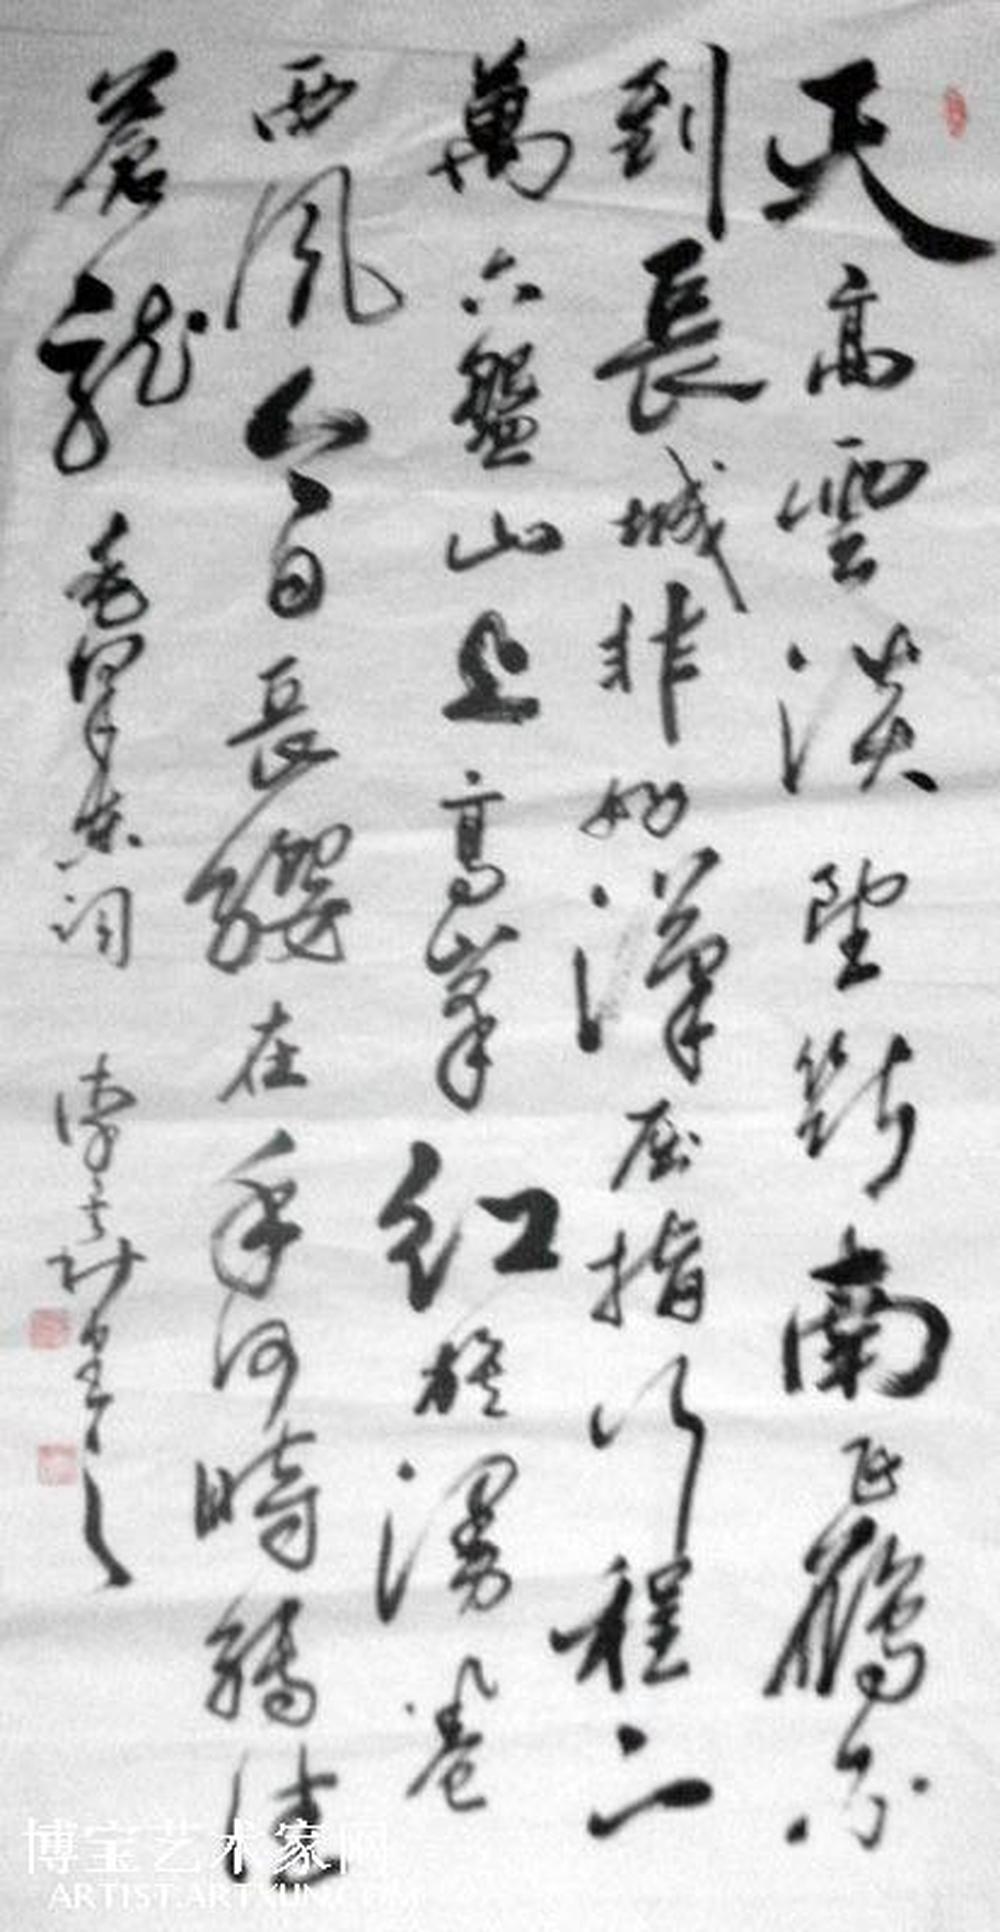 天高雲淡望斷南飛鴈不
到長城非好漢屈指行程二
萬六盤山上高峯紅旗漫卷
西風今日長纓在手何時縛住
蒼龍 毛澤東詞
博宝艺术家网
ARTIST.ARTXUN.COM